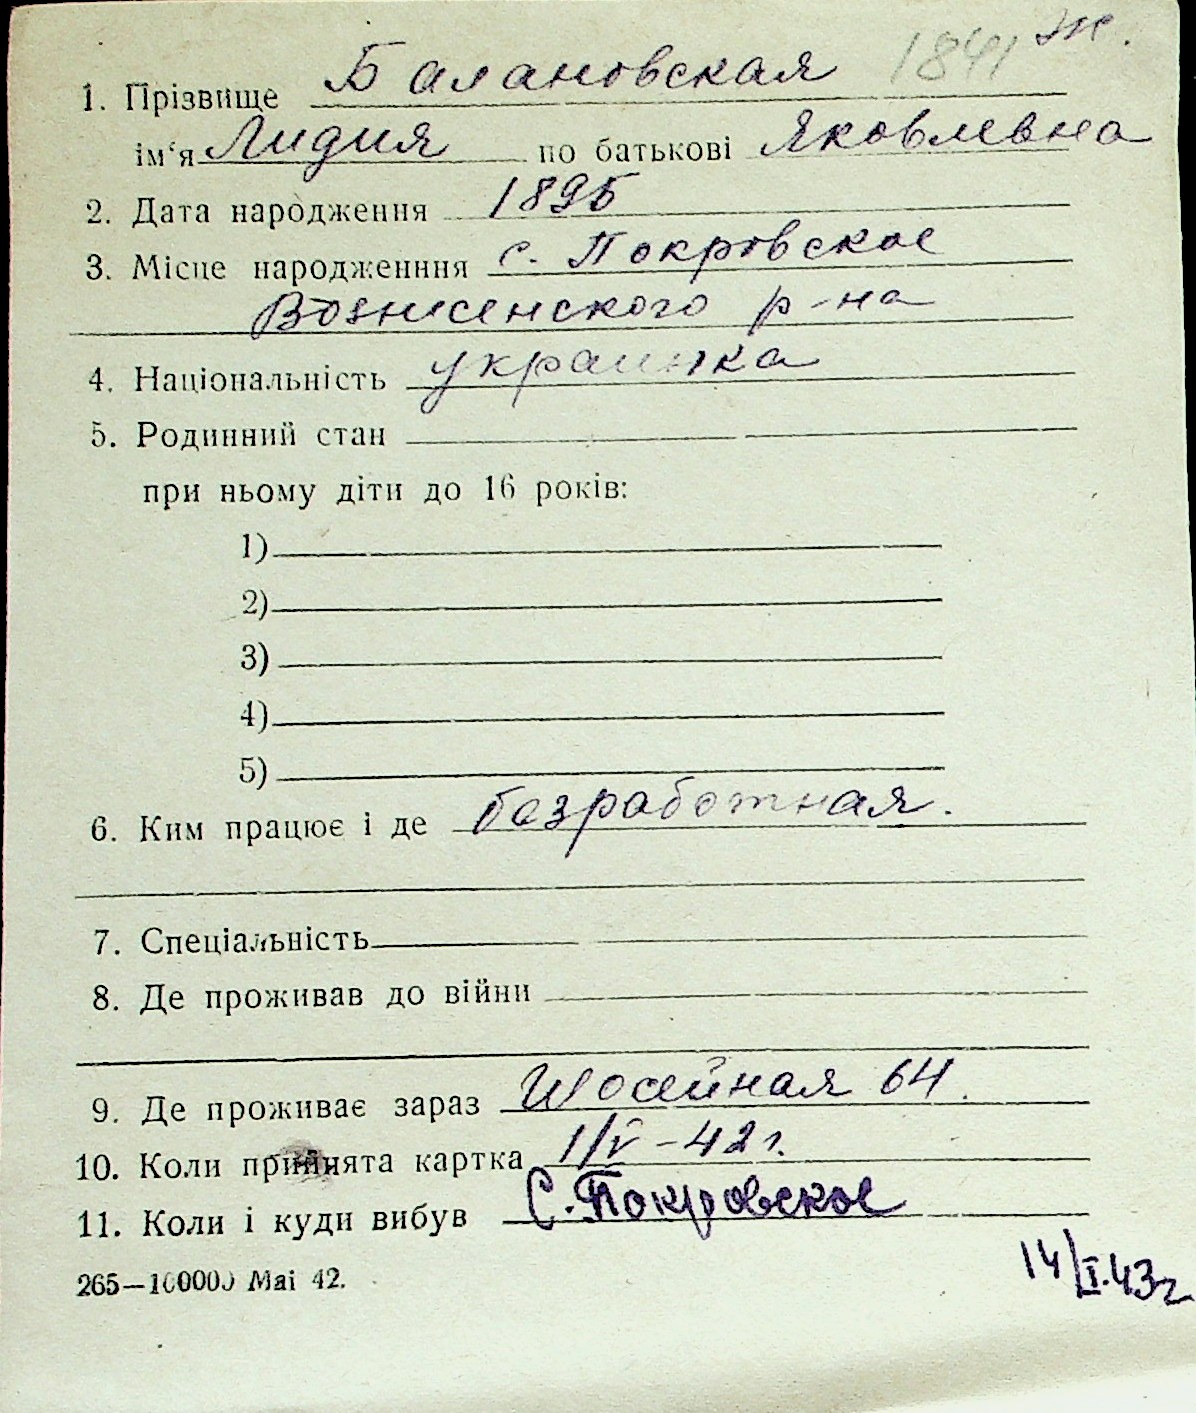 1841 Ж.
1. Прізвище Балановская
ім'я Лидия по батькові Яковлевна
2. Дата народження 1895
3. Місце народженння с. Покровское
Вознесенского р-на
4. Національність украинка
5. Родинний стан
при ньому діти до 16 років:
1)
2)
3)
4)
5)
6. Ким працює і де безработная.
7. Спеціальність
8. Де проживав до війни
9. Де проживає зараз Шосейная 64.
10. Коли прийнята картка 1/V-42 г.
11. Коли і куди вибув С. Покровское
14/I.43г
265—10000 Mai 42.